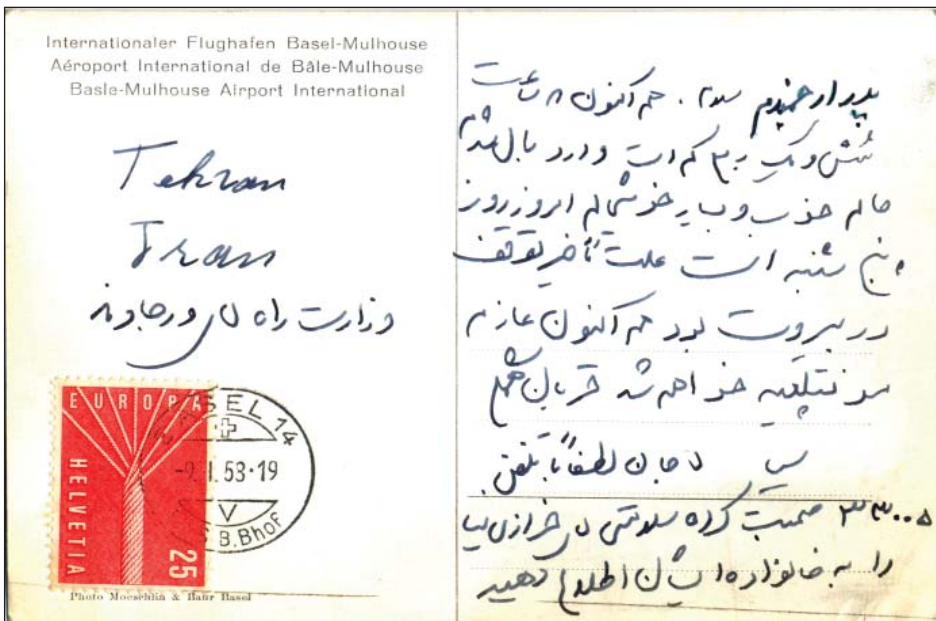 Internationaler Flughafen Basel-Mulhouse
Aéroport International de Bâle-Mulhouse
Basle-Mulhouse Airport International
Tehran
Iran
وزارت راه آقای ورجاوند
EUROPA
HELVETIA
25
BASEL 14
53-19
V
S.B.Bhof
Photo Moeschlin & Baur Basel
پدر ارجمندم سلام. هم اکنون ۸ ساعت
شش و یک ربع کم است وارد بال شدم
حالم خوب و بسیار خوشحالم امروز روز
پنج شنبه است علت تأخیر توقف
در بیروت بود هم اکنون عازم
مونتپلیه خواهم شد قربان همگی
جان لطفاً با تلفن
۳۳۰۰۵ صحبت کرده سلامتی آقای خرازی
را به خانواده ایشان اطلاع دهید